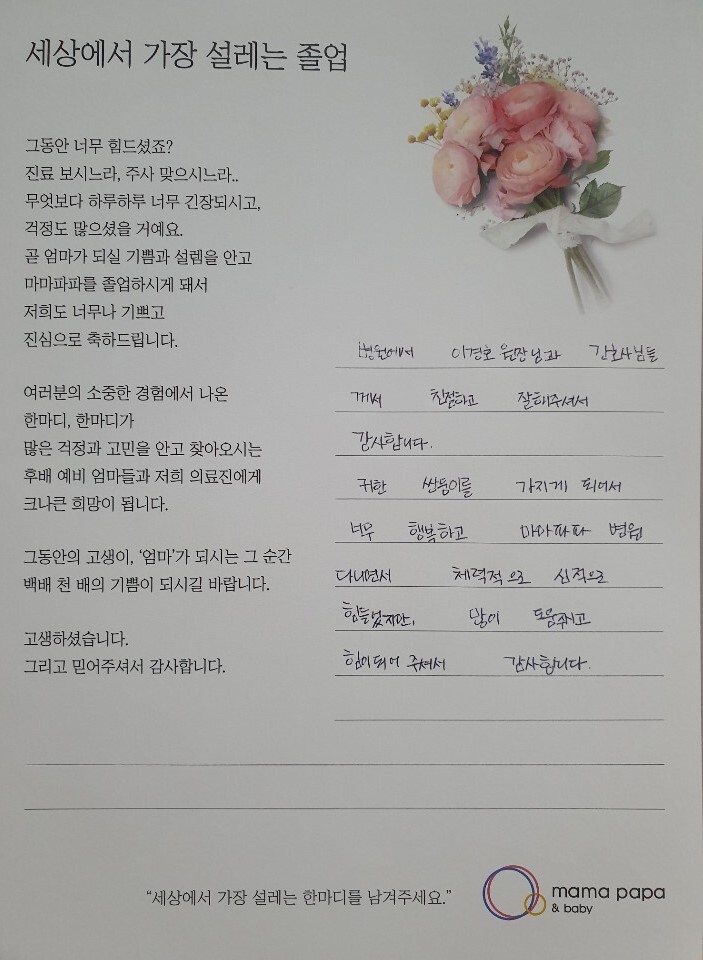 세상에서 가장 설레는 졸업
그동안 너무 힘드셨죠?
진료 보시느라, 주사 맞으시느라..
무엇보다 하루하루 너무 긴장되시고,
걱정도 많으셨을 거예요.
곧 엄마가 되실 기쁨과 설렘을 안고
마마파파를 졸업하시게 돼서
저희도 너무나 기쁘고
진심으로 축하드립니다.
여러분의 소중한 경험에서 나온
한마디, 한마디가
많은 걱정과 고민을 안고 찾아오시는
후배 예비 엄마들과 저희 의료진에게
크나큰 희망이 됩니다.
그동안의 고생이, '엄마'가 되시는 그 순간
백배 천 배의 기쁨이 되시길 바랍니다.
고생하셨습니다.
그리고 믿어주셔서 감사합니다.
병원에서 이경호 원장님과 간호사님들
께서 친절하고 잘해주셔서
감사합니다.
귀한 쌍둥이를 가지게 되어서
너무 행복하고 마마파파 병원
다니면서 체력적으로 심적으로
힘들었지만, 많이 도움주시고
힘이되어 주셔서 감사합니다.
"세상에서 가장 설레는 한마디를 남겨주세요."
mama papa
& baby